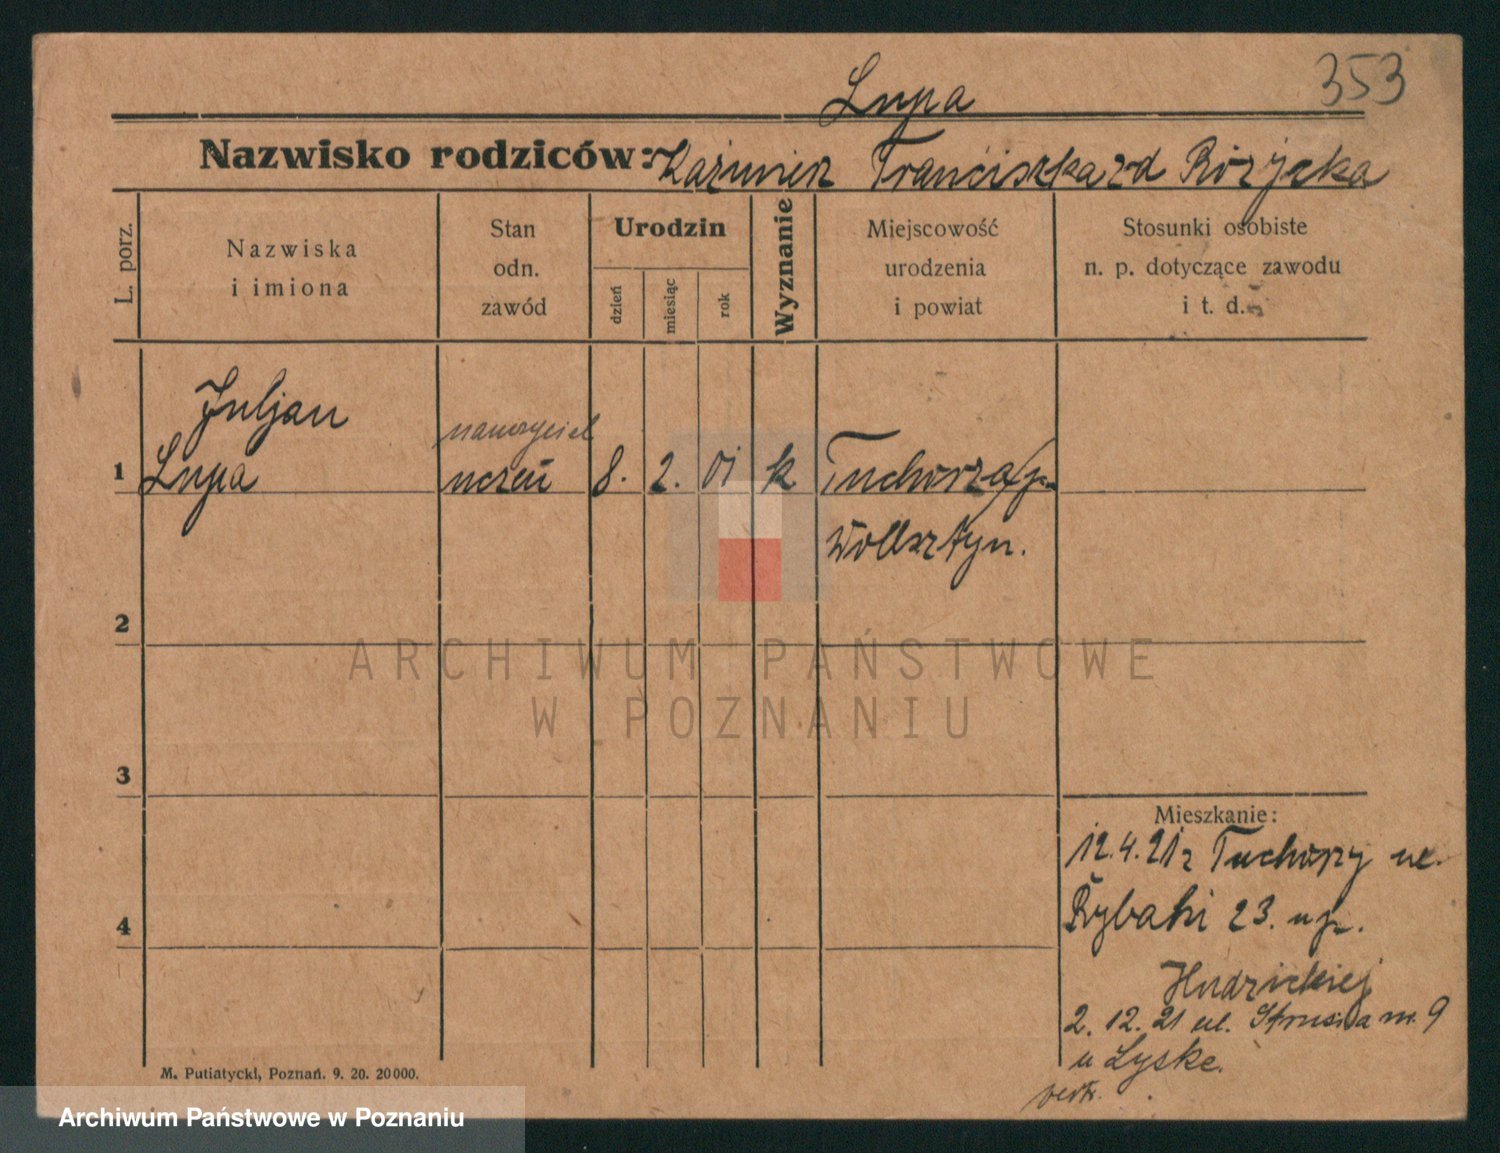 353
Lupa
Nazwisko rodziców: Kaźmierz Franciszka zd Różycka
L. porz.
Nazwiska
i imiona
Stan
odn.
zawód
Urodzin
dzień
miesiąc
rok
Wyznanie
Miejscowość
urodzenia
i powiat
Stosunki osobiste
n. p. dotyczące zawodu
i t. d.
Juljan
nauczyciel
1 Lupa uczeń 8. 2. 01 k Tuchorza/p.
Wollsztyn.
2
3
Mieszkanie:
12.4.21 z Tuchorzy ul.
4 Rybaki 23. u p.
Hudzickiej
2. 12. 21 ul. Strusia m. 9
u Lyske.
vertr.
M. Putiatycki, Poznań. 9. 20. 20000.
ARCHIWUM PAŃSTWOWE
W POZNANIU
Archiwum Państwowe w Poznaniu